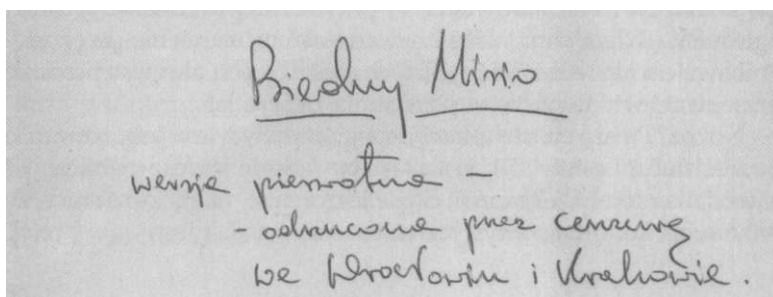 Biedny Misio
wersja pierwotna -
- odrzucona przez cenzurę
we Wrocławiu i Krakowie.